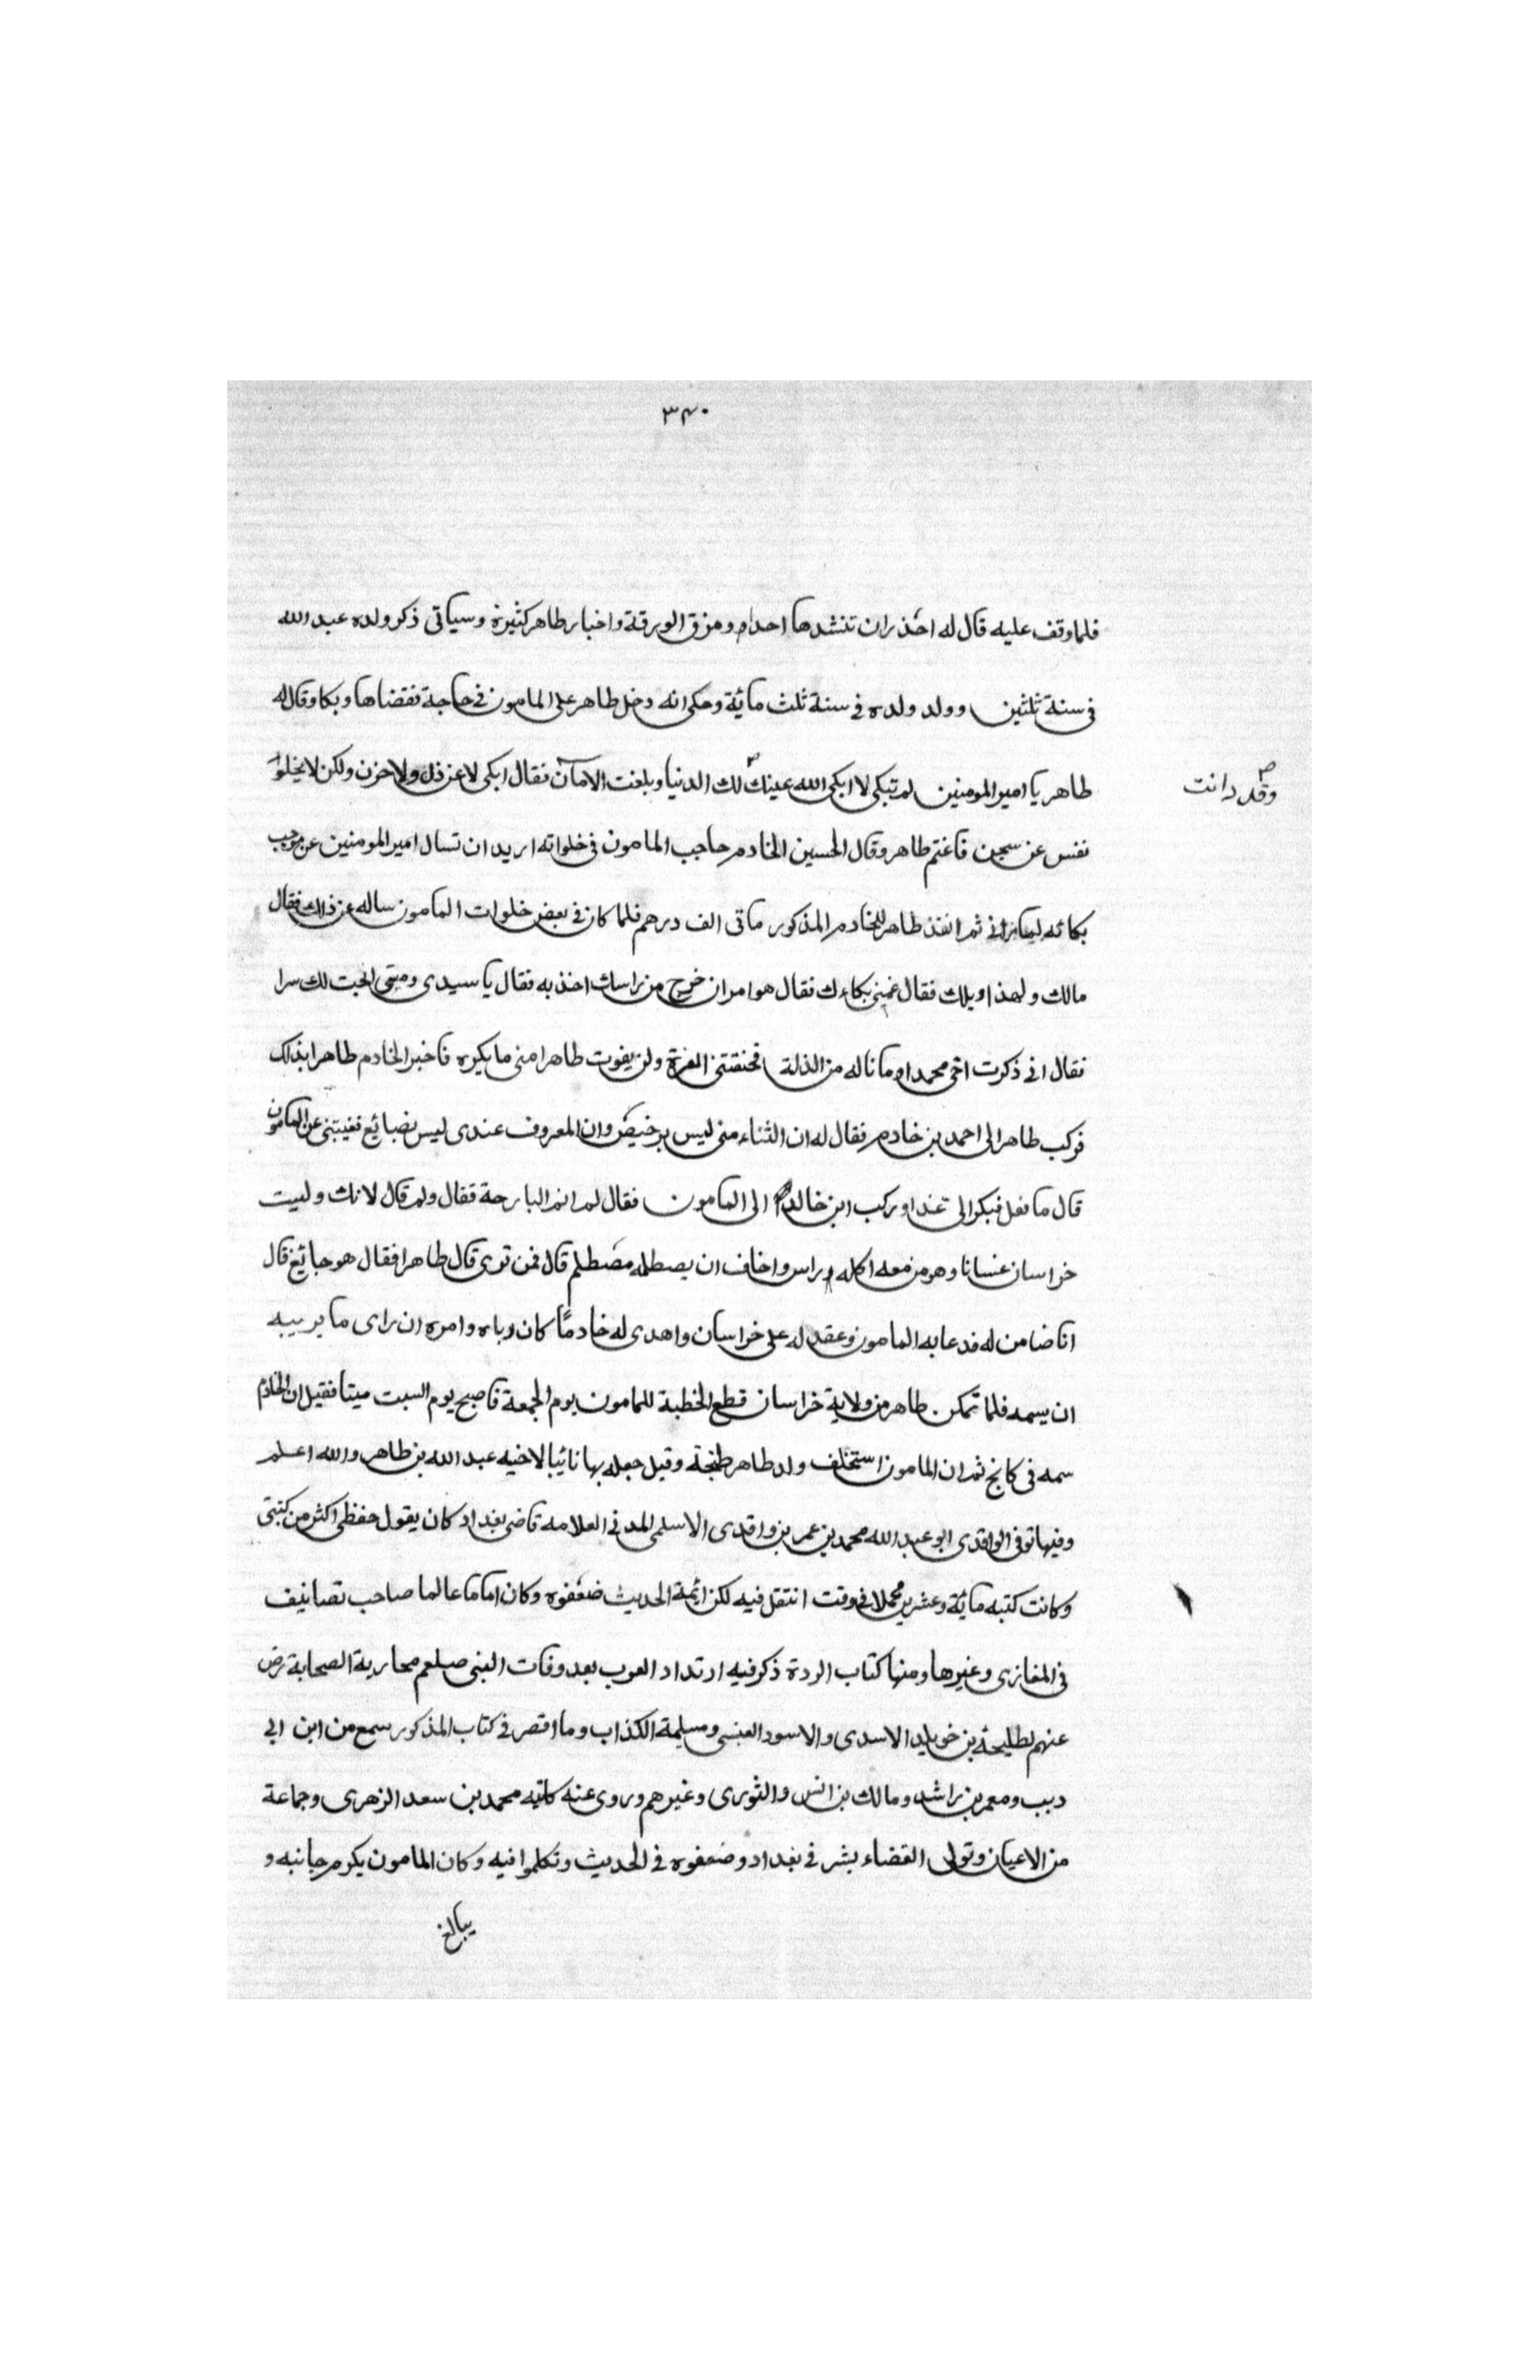 ٣٤٠
فلما وقف عليه قال له احذر ان تنشدها احدا ومزق الورقة واخبار طاهر كثيرة وسياتى ذكر ولده عبد الله
فى سنة ثلثين وولد ولده فى سنة ثلث مائة وحكى انه دخل طاهر على المامون فى حاجة فقضاها وبكا وقال له
طاهر يا امير المومنين لم تبكى لا ابكى الله عينك لك الدنيا وبلغت الامان فقال ابكى لا عن ذل ولا حزن ولكن لا يخلوا
وقد دانت
نفس عن سجن فاغتم طاهر وقال الحسين الخادم حاجب المامون فى خلواته اريد ان تسال امير المومنين عن موجب
بكائه لما رانى ثم انفذ طاهر للخادم المذكور ماتى الف درهم فلما كان فى بعض خلوات المامون ساله عن ذلك فقال
مالك ولهذا ويلك فقال غمنى بكاءك فقال هو امر ان خرج من راسك اخذ به فقال يا سيدى ومتى الحبت لك سرا
فقال انى ذكرت اخى محمدا وما ناله من الذلة فخنقتنى العزة ولن يفوت طاهرا منى ما يكره فاخبر الخادم طاهرا بذلك
فركب طاهر الى احمد بن خادم فقال له ان الثناء منى ليس برخيص وان المعروف عندى ليس بضائع فغيبنى عن المامون
قال ما فعل فبكر الى غدا وركب ابن خالد الى المامون فقال لم انم البارحة فقال ولم قال لانك وليت
خراسان غسانا وهو من معه اكله راس واخاف ان يصطله مصطلم قال فمن ترى قال طاهرا فقال هو جائع قال
انا ضامن له فدعا به المامون وعقد له على خراسان واهدى له خادمًا كان رباه وامره ان راى ما يريبه
ان يسمه فلما تمكن طاهر من ولاية خراسان قطع الخطبة للمامون يوم الجمعة فاصبح يوم السبت ميتا فقيل ان الخادم
سمه فى كانخ ثم ان المامون استخلف ولد طاهر طلحة وقيل جعله بها نائبا لاخيه عبد الله بن طاهر والله اعلم
وفيها توفى الواقدى ابو عبد الله محمد بن عمر بن واقدى الاسلمى المدنى العلامه قاضى بغداد كان يقول حفظى اكثر من كتبى
وكانت كتبه مائة وعشرين محملا فى وقت انتقل فيه لكن ائمة الحديث ضعفوه وكان اماما عالما صاحب تصانيف
فى المغازى وغيرها ومنها كتاب الردة ذكر فيه ارتداد العرب بعد وفات النبى صلعم محاربة الصحابة رض
عنهم لطليحة بن خويلد الاسدى والاسود العبسى ومسيلمة الكذاب وما اقصر فى كتاب المذكور سمع من ابن ابى
ديب ومعمر بن راشد ومالك بن انس والثورى وغيرهم وروى عنه كاتبه محمد بن سعد الزهرى وجماعة
من الاعيان وتولى القضاء بشر فى بغداد وضعفوه فى الحديث وتكلموا فيه وكان المامون يكرم جانبه و
يبالغ